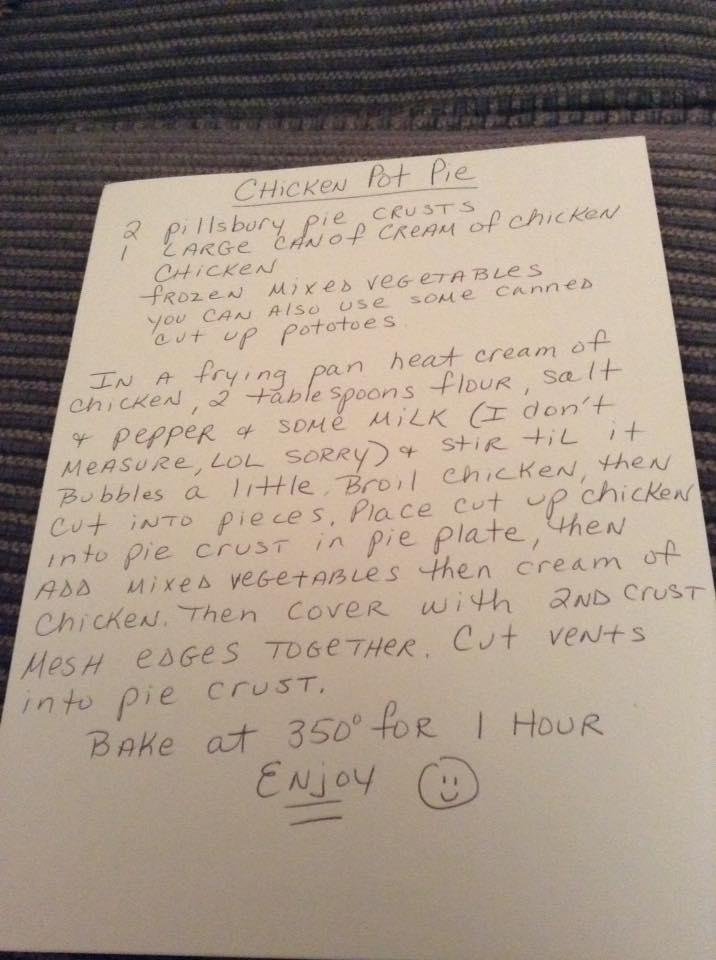 CHICKEN Pot Pie
2 pillsbury pie CRUSTS
1 LARGE CAN of CREAM of chicken
CHICKEN
fROZEN MIXED VEGETABLES
you CAN Also use some canned
cut up pototoes
IN A frying pan heat cream of
chicken, 2 tablespoons flour, salt
& pepper & some MILK (I don't
MEASURE, LOL SORRY) & stir til it
Bubbles a little. Broil chicken, then
cut into pieces. Place cut up chicken
into pie crust in pie plate, then
ADD MIXED VEGETABLES then cream of
chicken. Then cover with 2ND CRUST
MESH EDGES TOGETHER. Cut vents
into pie crust.
BAKE at 350° foR 1 HOUR
ENJOY